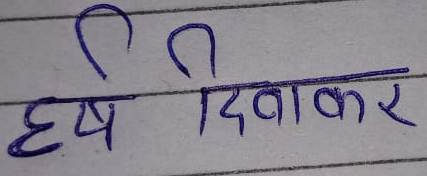 हर्ष दिवाकर